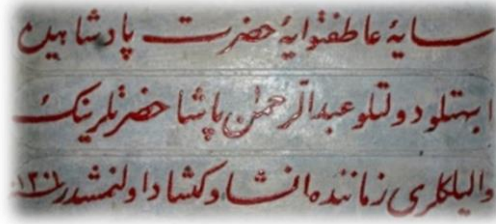 سایهٔ عاطفتوایهٔ حضرت پادشاهیده
ابهتلو دولتلو عبدالرحمن پاشا حضرتلرینك
والیلکلری زماننده انشا و کشاد اولنمشدر ١٣٠١